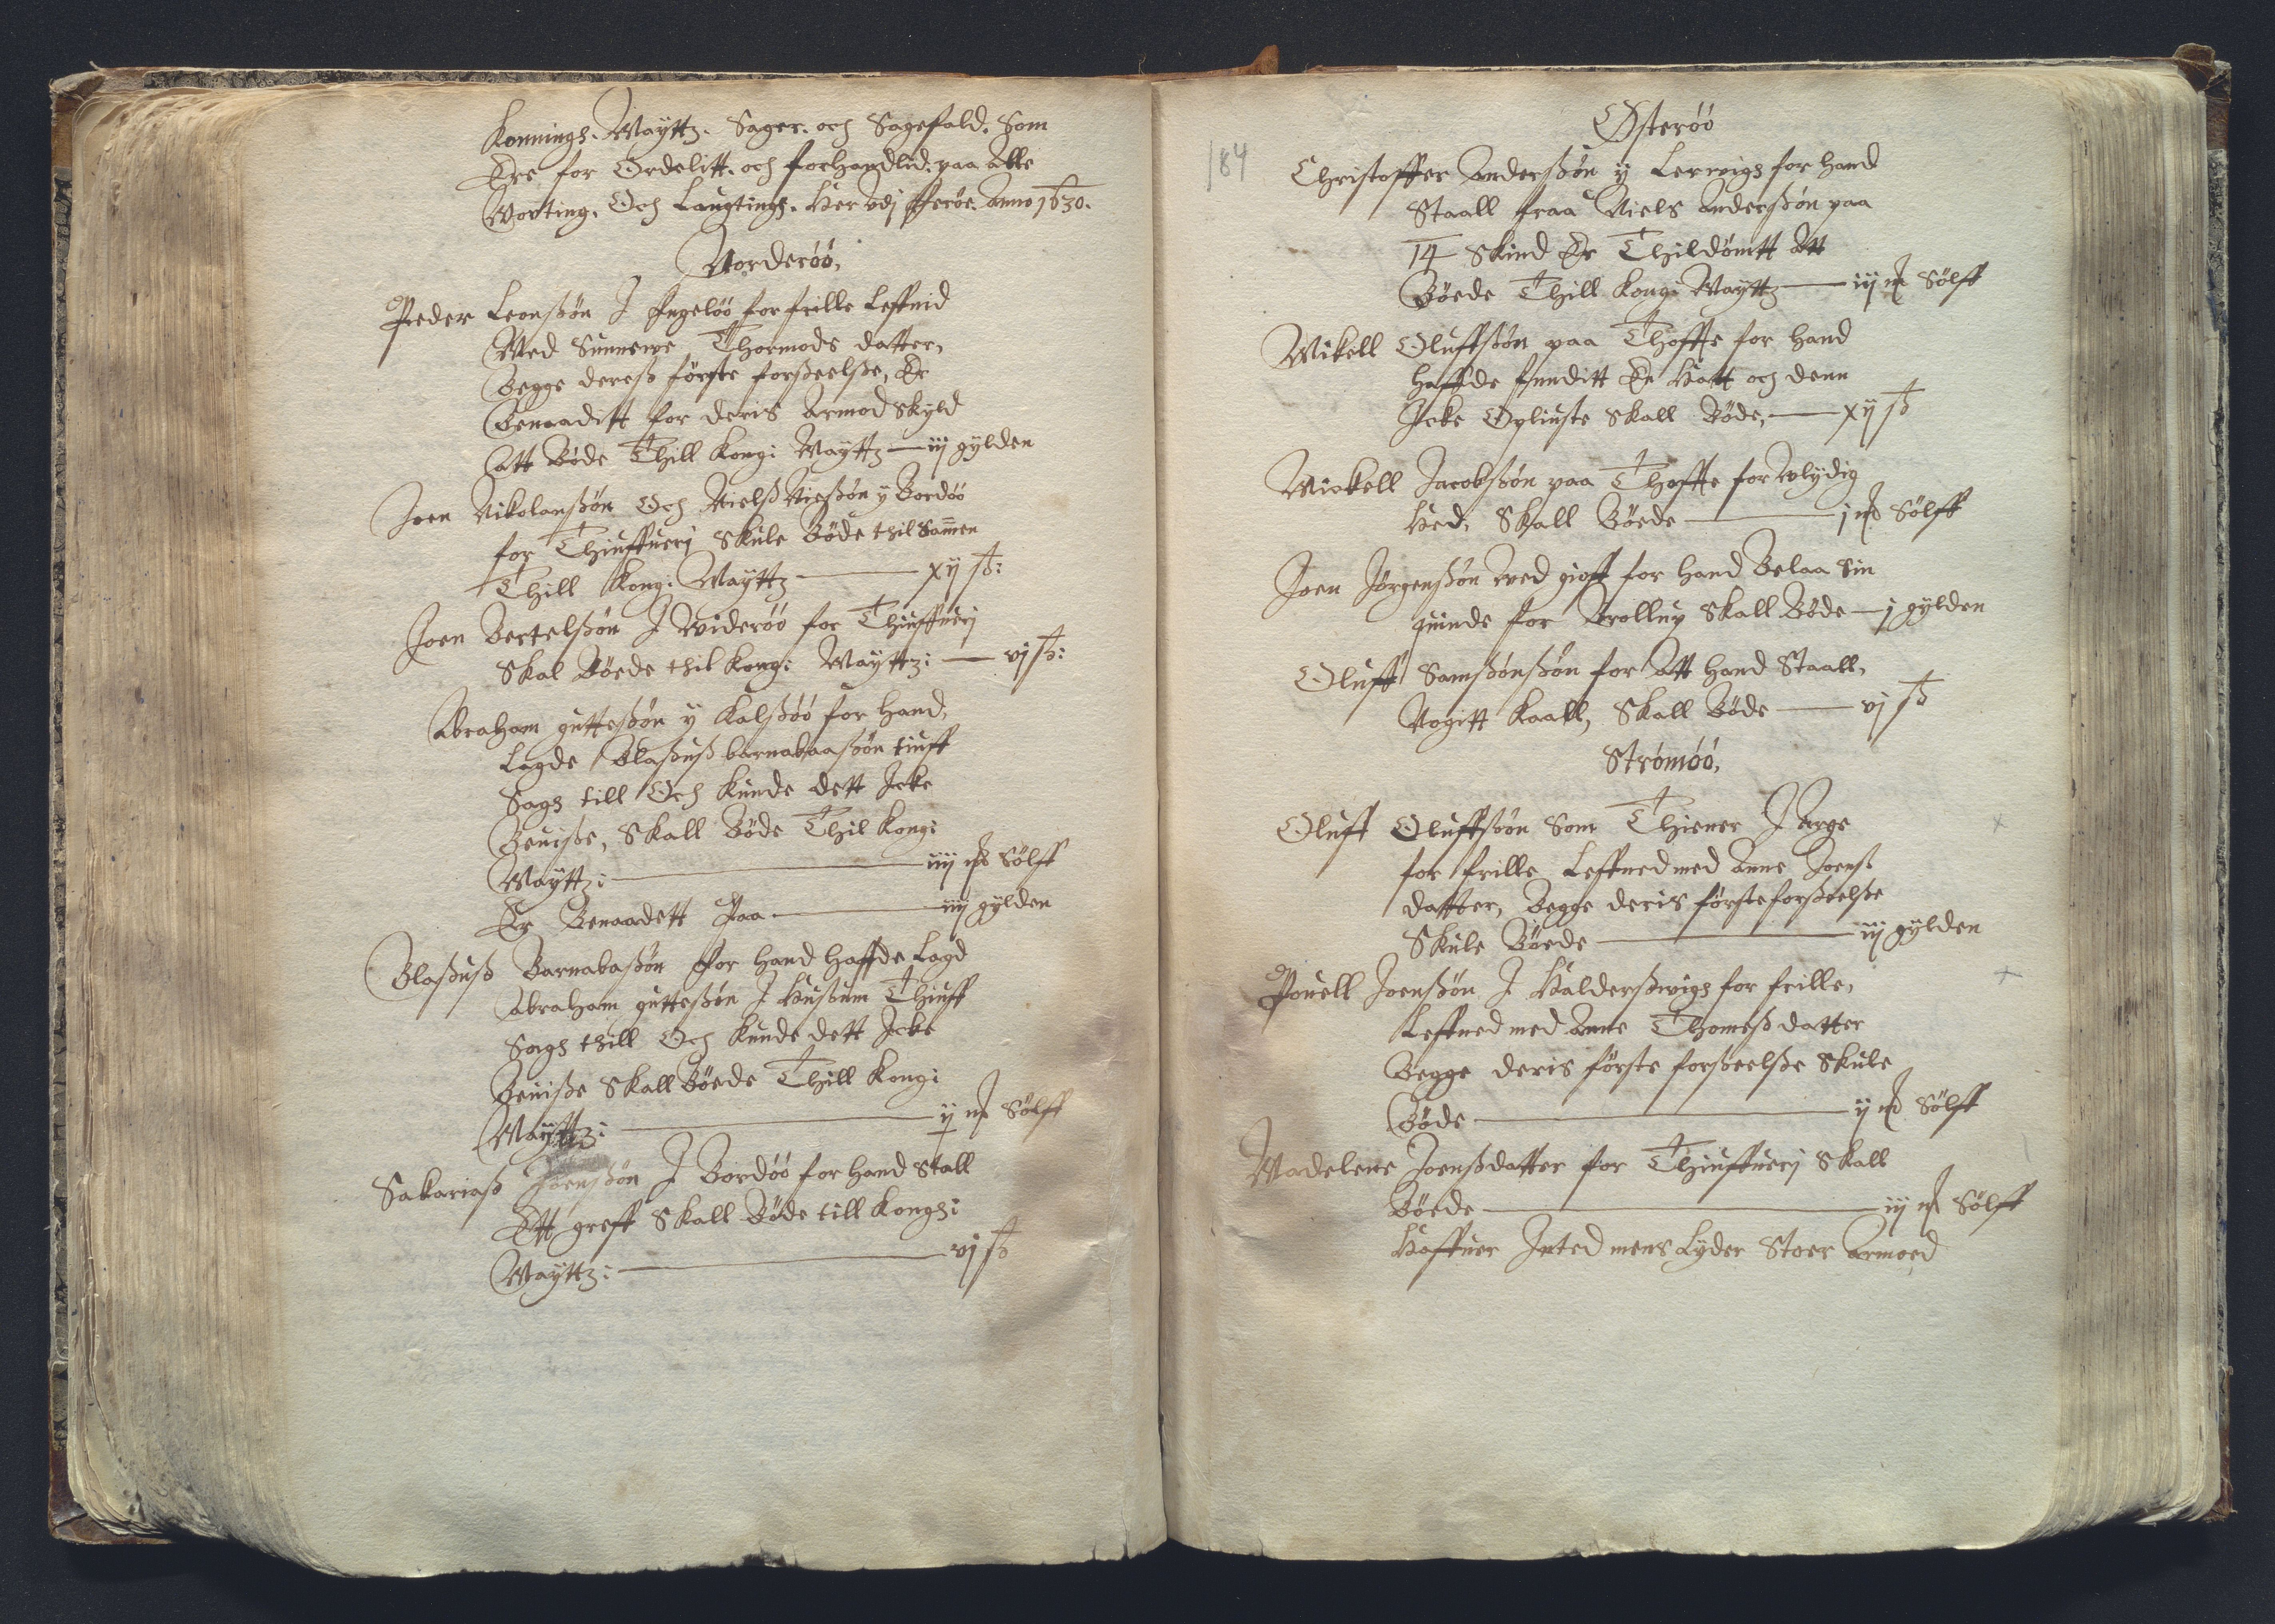 Konnings. Mayttz. Sager. och Sagefald. Som
Ere for Ordelitt. och forhandlid. paa Alle
Worting. Och Laugtingh. Her vdj Fferöe. Anno 1630.
Norderöö,
Peder Leonßön J Fugelöö for frille Leffnid
Med Sunneve Thormods datter,
Begge dereß förste forßeelße, Er
Benaaditt for deris Armod skyld
att Böde Thill Kong: Mayttz — iij gylden
Joen Nikolaußön Och Nielß Nießön y Bordöö
for Thiuffuerj Skule Böde thil Samen
Thill Kong: Mayttz — xij ß:
Joen Bertelßön J Wideröö for Thiuffuerj
Skal Böede thil Kong: Mayttz: — vj ß:
Abraham gutteßön y Kalßöö for hand,
Lagde Blaßuß barnabaaßön tiuff
Sagh till Och kunde dett Icke
Beuiße, Skall Böde Thil Kong:
Mayttz: — iiij mk Sölff
Er Benaadett Paa — iiij gylden
Blaßuß Barnabaßön for hand haffde Lagd
Abraham gutteßön J Hußum Thiuff
Sagh thill Och kunde dett Icke
Beuiße Skall Böede Thill Kong:
Mayttz: — ij mk Sölff
Sakariaß Joenßön J Bordöö for hand Stall
Ett greff Skall Böde till Kongh:
Mayttz: — vj ß
184
Österöö
Christoffer Anderßön y Lerwigh for hand
Staall fraa Niels Anderßön paa
14 Skind Er Thildömtt Att
Böede Thill Kong: Mayttz — iij mk Sölff
Mikell Oluffßön paa Thoffte for hand
haffde funditt En Hatt och denn
Icke Opliuste Skall Böde, — xij ß
Mickell Jacobßön paa Thoffte for Wlydig
Hed, Skall Böede — j mk Sölff
Joen Jörgenßön ved gioff for hand Belaa Sin
quinde for Brollup Skall Böde — j gylden
Oluff Samßönßön for Att hand Staall,
Nogitt Kaall, Skall Böde — vj ß
Strömöö,
Oluff Oluffßön Som Thiener J Arge
for frille Leffned med Anne Joenß
datter, Begge deris förste forßeelße
Skule Böede — iij gylden
Pouell Joenßön J Halderßwigh for frille,
Leffned med Anne Thomeß datter
Begge deris förste forßeelße Skule
Böde — ij mk Sölff
Madelene Joenßdatter for Thiuffuerj Skall
Böede — iij mk Sölff
Haffuer Inted mens Lyder Stoer Armoed